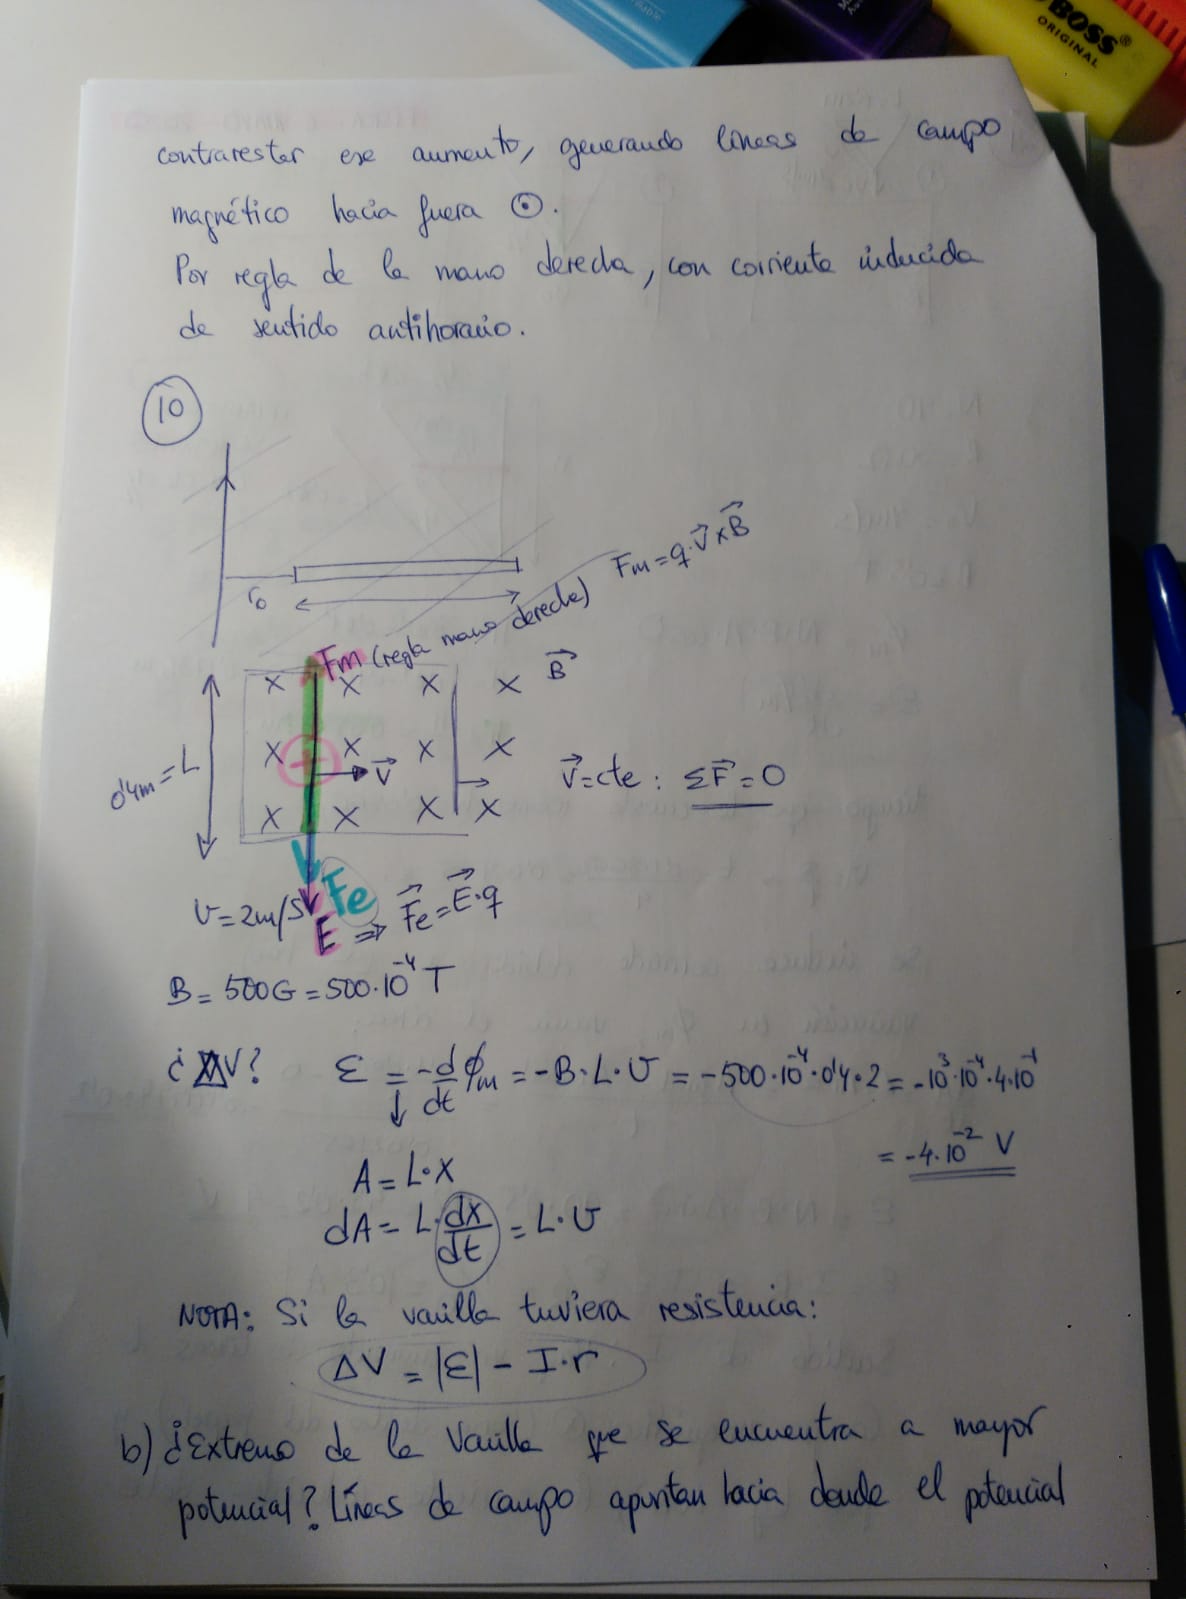 BOSS®
ORIGINAL
contrarestar ese aumento, generando líneas de campo
magnético hacia fuera ⊙.
Por regla de la mano derecha, con corriente inducida
de sentido antihorario.
10
r₀
Fm (regla mano derecha) Fm = q·v⃗×B⃗
x x x x B⃗
x + x x x
v⃗
0'4m = L
v⃗=cte : ΣF⃗ = 0
x x x x
Fe
v = 2m/s
E⃗ ⇒ F⃗e = E⃗·q
B = 500G = 500·10⁻⁴ T
¿ΔV? ε = -d/dt ϕm = -B·L·v = -500·10⁻⁴·0'4·2 = -10³·10⁻⁴·4·10⁻¹
= -4·10⁻² V
A = L·x
dA = L·dx/dt = L·v
NOTA: Si la varilla tuviera resistencia:
ΔV = |ε| - I·r
b) ¿Extremo de la varilla que se encuentra a mayor
potencial? Líneas de campo apuntan hacia donde el potencial